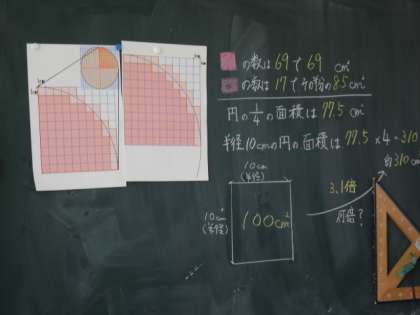 の数は69で 69 cm²
の数は17で の半分の8.5cm²
円の1/4の面積は 77.5 cm²
半径10cmの円の面積は 77.5 × 4 = 310
約310cm
10cm
(半径)
10cm
(半径)
100cm²
3.1倍
何倍?